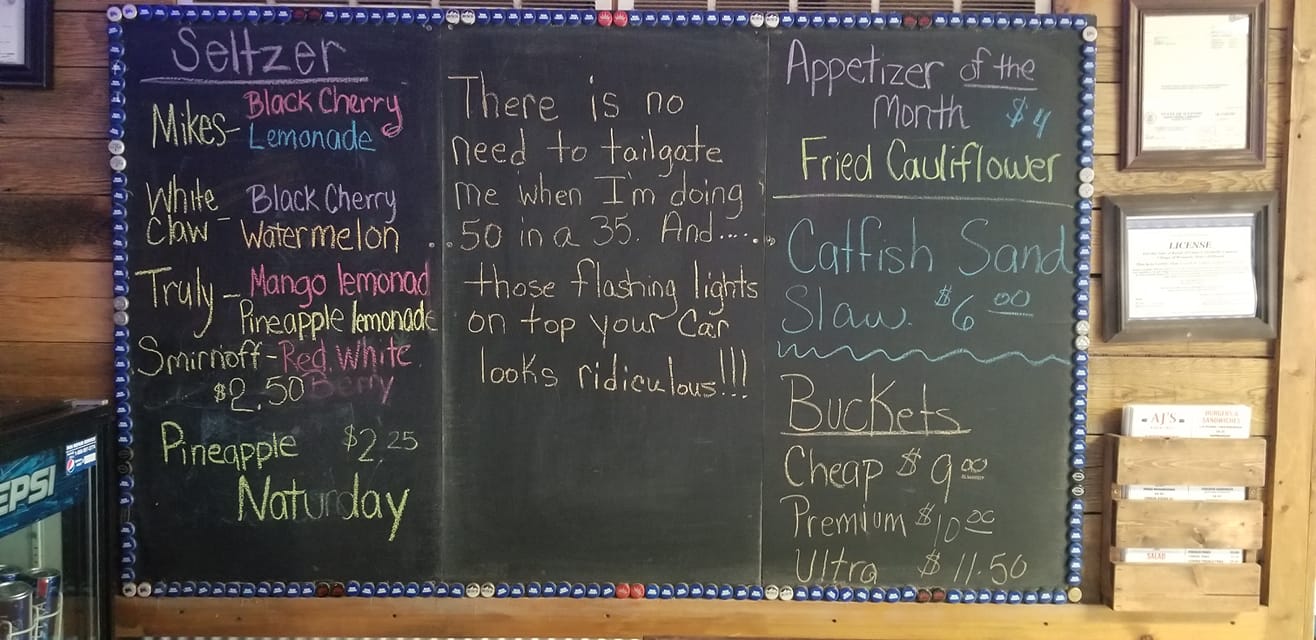 Seltzer
Mikes- Black Cherry
Lemonade
White Claw - Black Cherry
Watermelon
Truly - Mango lemonad
Pineapple lemonade
Smirnoff - Red. White.
$2.50 Berry
Pineapple $2.25
Naturday
There is no
need to tailgate
me when I'm doing
50 in a 35. And....
those flashing lights
on top your Car
looks ridiculous!!!
Appetizer of the
Month $4
Fried Cauliflower
Catfish Sand
Slaw. $6.00
Buckets
Cheap $9.00
Premium $10.00
Ultra $11.50
LICENSE
AJ'S
BURGERS &
SANDWICHES
SALAD
EPSI